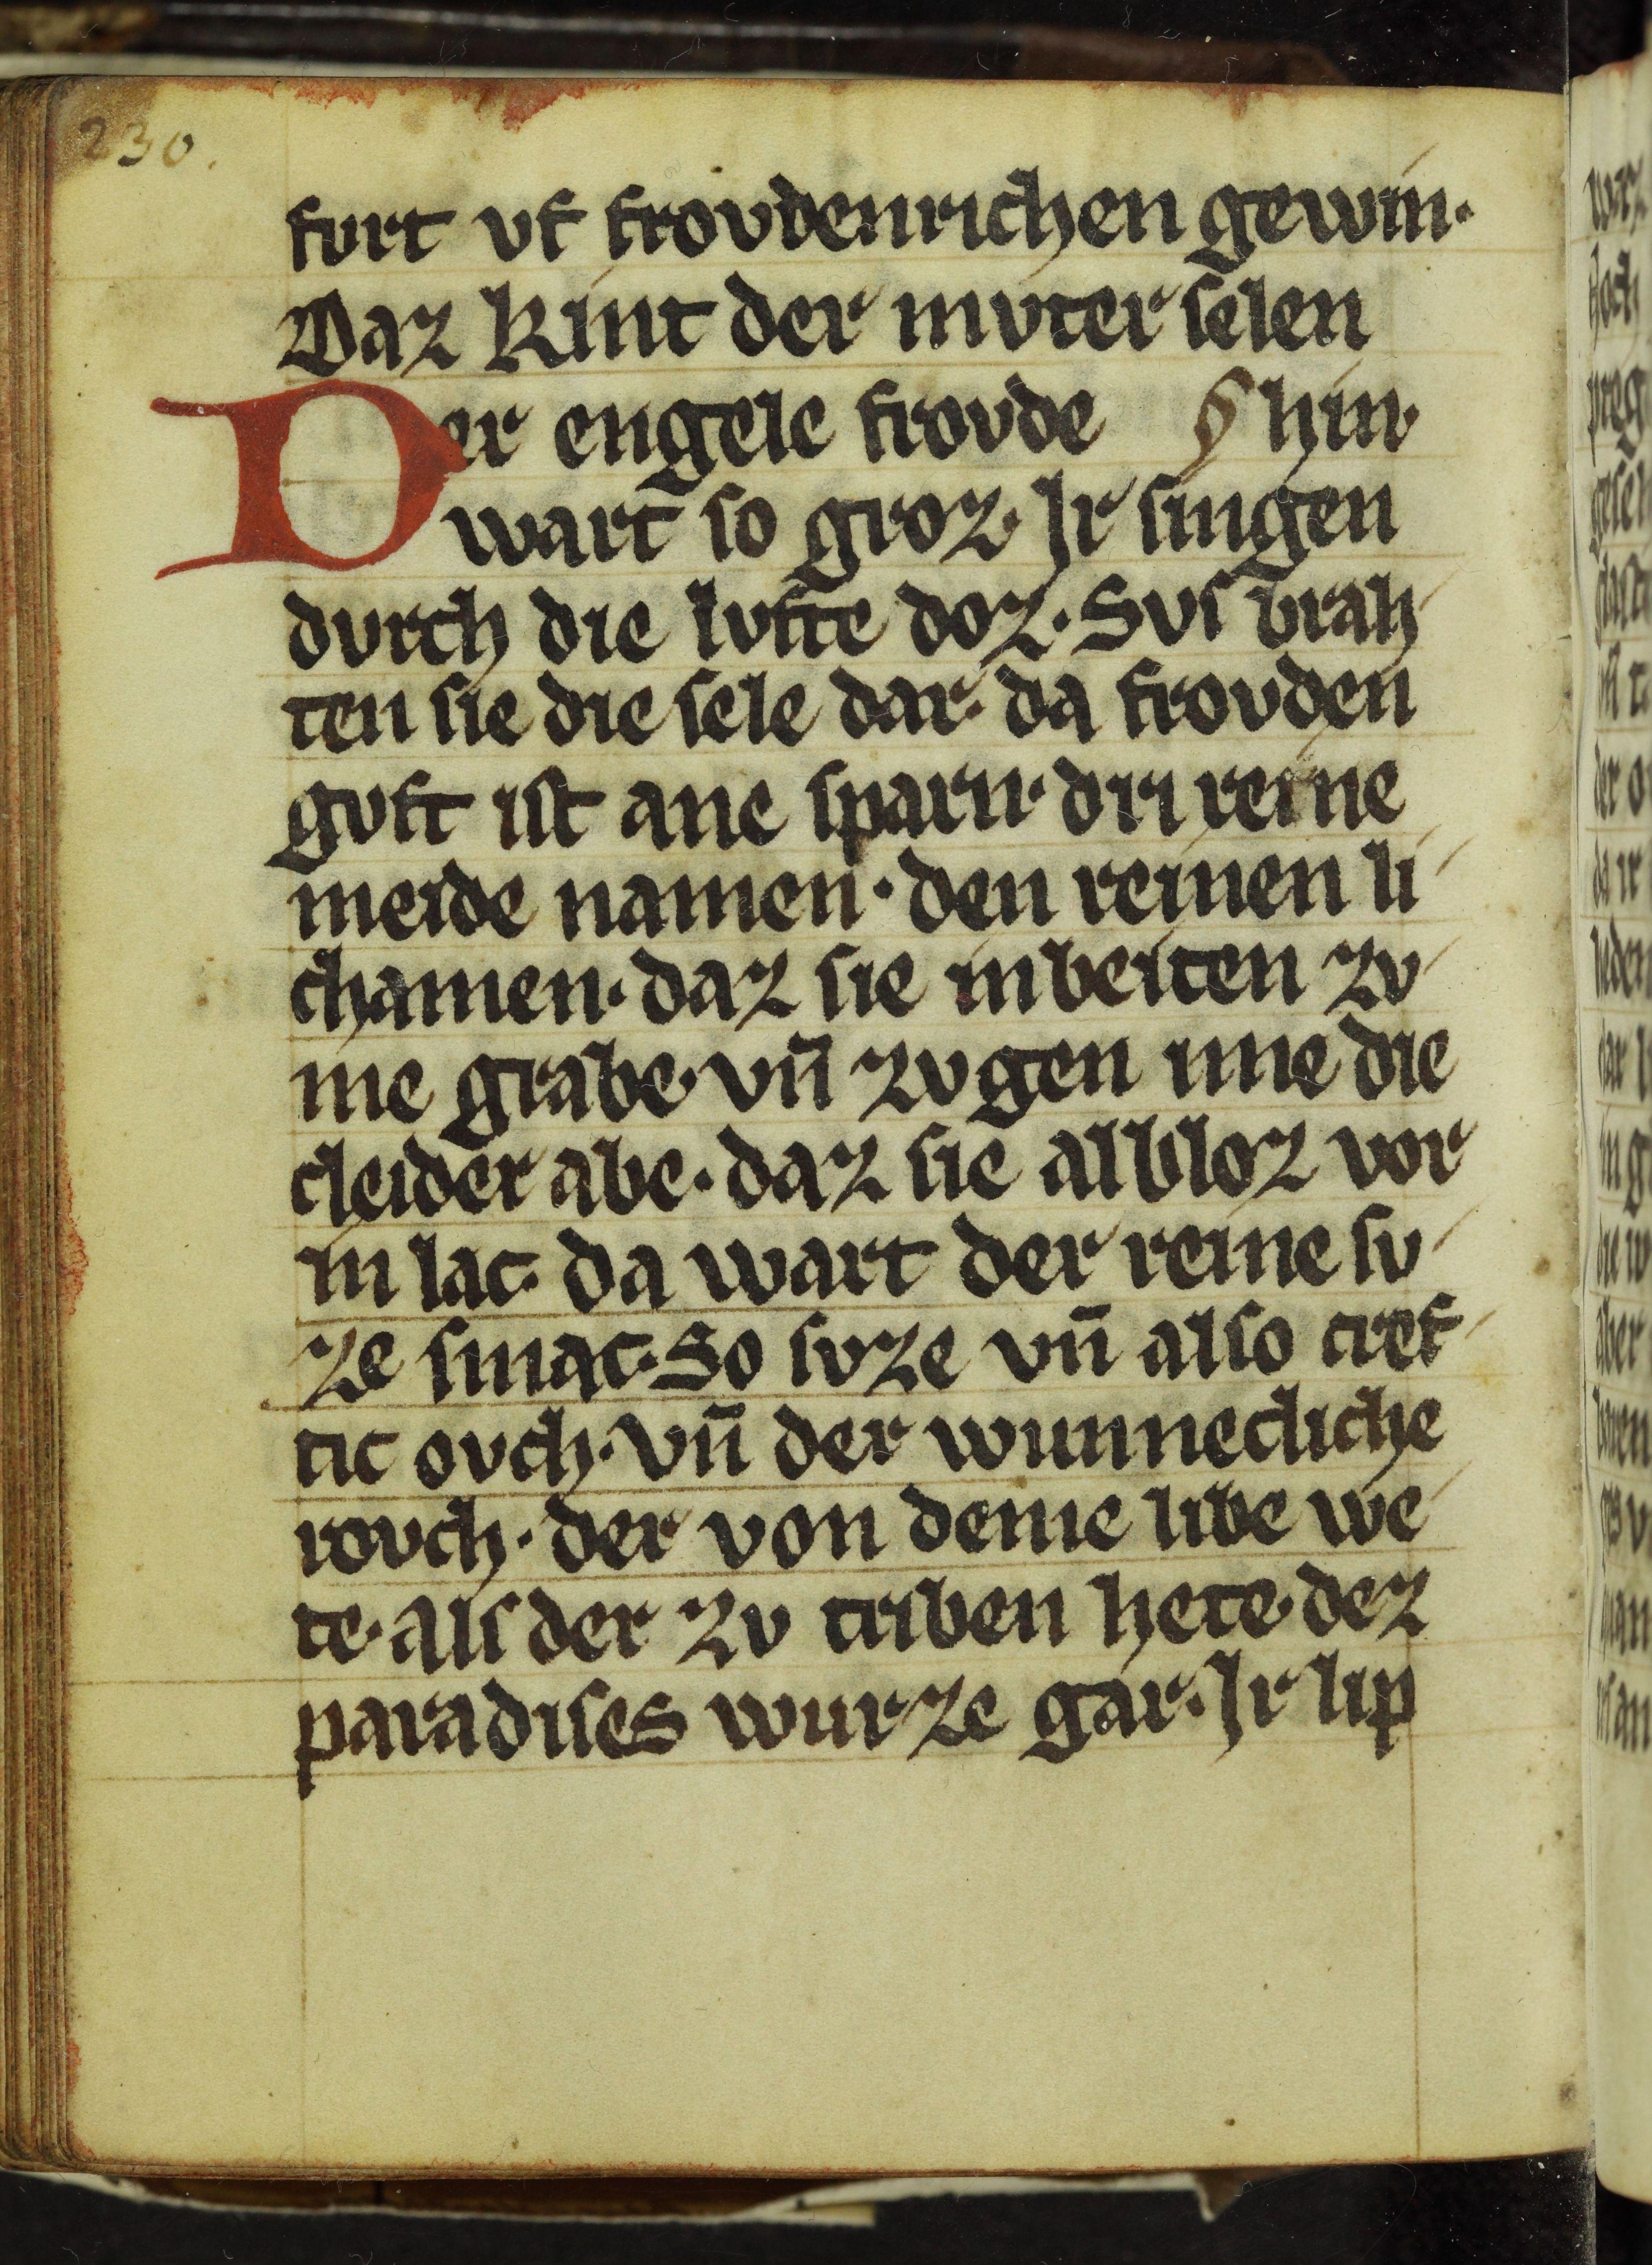 230.
furt vf frovdenrichen gewin·
Daz kint der mvter selen
Der engele frovde ꝯ hin·
wart so groz· Ir singen
dvrch die lvfte doz· Svs brah
ten sie die sele dar· da frovden
gvft ist ane sparn· dri reine
meide namen· den reinen li
chamen· daz sie in beiten zv
me grabe· vn̄ zvgen ime die
cleider abe· daz sie al bloz vor
in lac· da wart der reine sv
ze smac· So svze vn̄ also cref
tic ovch· vn̄ der wunnecliche
rovch· der von deme libe we
te· als der zv triben hete· dez
paradises wurze gar· Ir lip